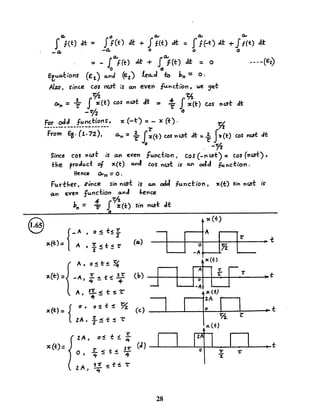 ∫_{-a}^{a} f(t) dt = ∫_{-a}^{0} f(t) dt + ∫_{0}^{a} f(t) dt = ∫_{0}^{a} f(-t) dt + ∫_{0}^{a} f(t) dt
= - ∫_{0}^{a} f(t) dt + ∫_{0}^{a} f(t) dt = 0 ----(E₂)
Equations (E₁) and (E₂) lead to bₙ = 0.
Also, since cos nωt is an even function, we get
aₙ = 2/τ ∫_{-τ/2}^{τ/2} x(t) cos nωt dt = 4/τ ∫_{0}^{τ/2} x(t) cos nωt dt
For odd functions, x(-t) = - x(t).
From Eq. (1.72), aₙ = 2/τ ∫_{0}^{τ} x(t) cos nωt dt = 2/τ ∫_{-τ/2}^{τ/2} x(t) cos nωt dt
Since cos nωt is an even function, cos(-nωt) = cos(nωt),
the product of x(t) and cos nωt is an odd function.
Hence aₙ = 0.
Further, since sin nωt is an odd function, x(t) sin nωt is
an even function and hence
bₙ = 4/τ ∫_{0}^{τ/2} x(t) sin nωt dt
1.65
x(t) = { -A, 0 ≤ t ≤ τ/2
A, τ/2 ≤ t ≤ τ (a)
x(t) A 0 -A τ/2 τ t
x(t) = { A, 0 ≤ t ≤ τ/4
-A, τ/4 ≤ t ≤ 3τ/4 (b)
A, 3τ/4 ≤ t ≤ τ
x(t) A 0 -A τ/2 τ t
x(t) = { 0, 0 ≤ t ≤ τ/2
2A, τ/2 ≤ t ≤ τ (c)
x(t) 2A 0 τ/2 τ t
x(t) = { 2A, 0 ≤ t ≤ τ/4
0, τ/4 ≤ t ≤ 3τ/4 (d)
2A, 3τ/4 ≤ t ≤ τ
x(t) 2A 0 τ/2 τ t
28